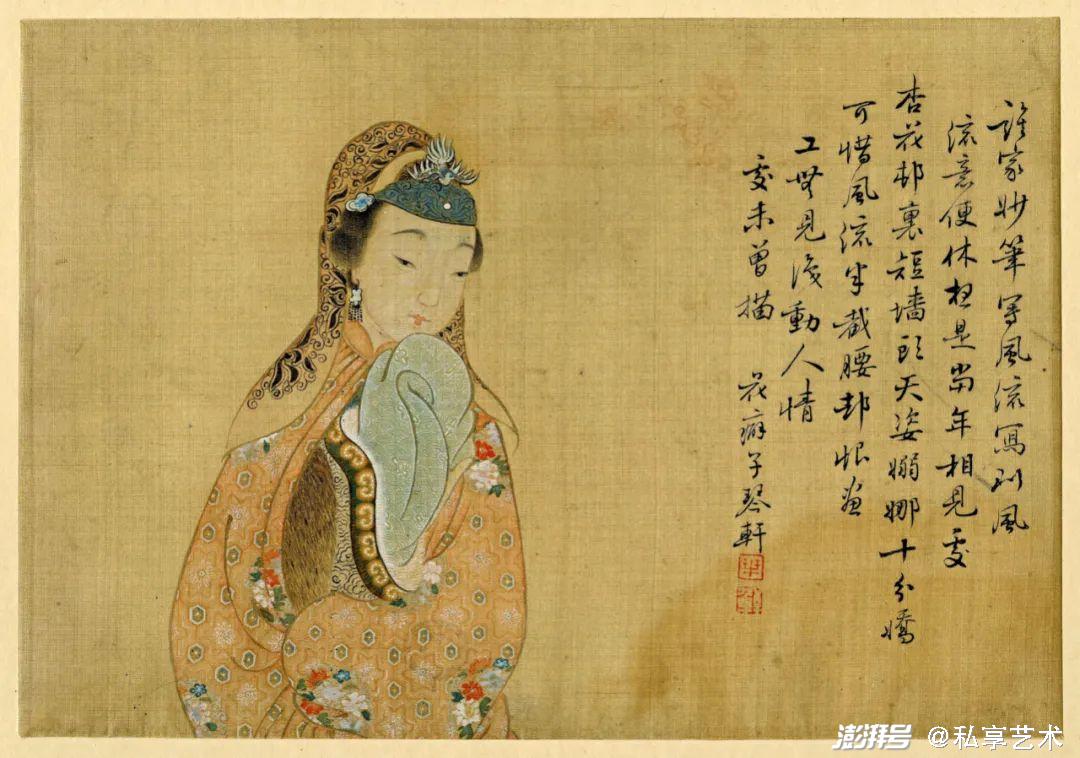 誰家妙筆写風流寫到風
流意便休想是當年相見處
杏花邨裏短墻頭天姿嫋娜十分嬌
可惜風流半截腰却恨畫
工無見識動人情
處未曾描 花癖子琴軒
澎湃号 @私享艺术